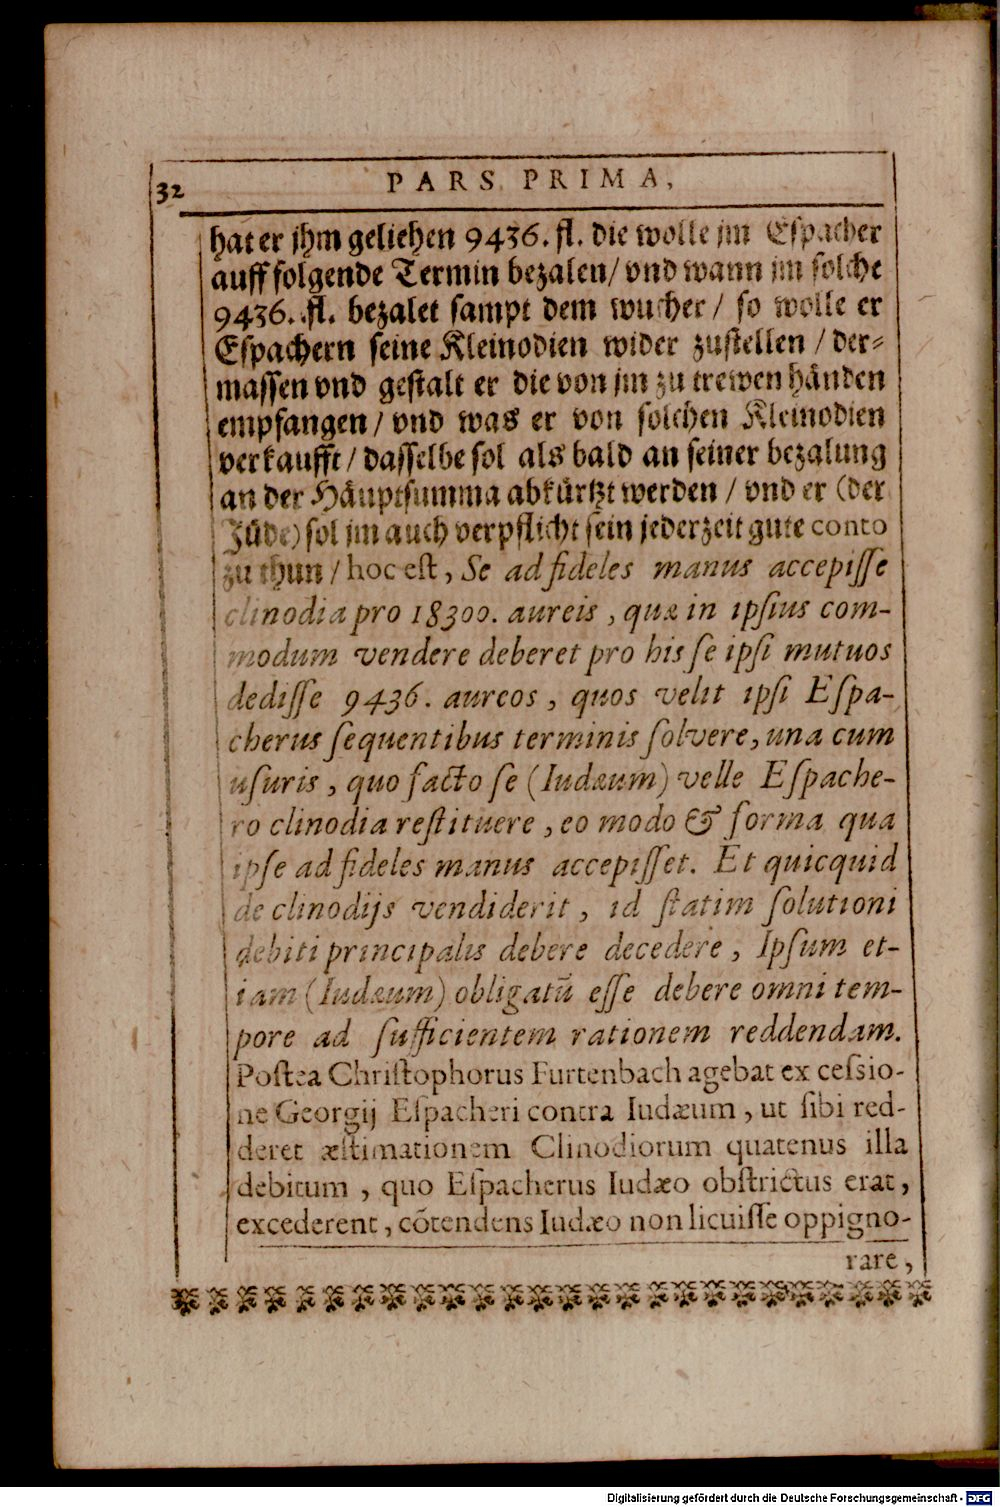 32
PARS PRIMA,
hat er jhm geliehen 9436. fl. die wolle jm Eſpacher
auff folgende Termin bezalen/ vnd wann jm ſolche
9436. fl. bezalet ſampt dem wucher / ſo wolle er
Eſpachern ſeine Kleinodien wider zuſtellen / der⸗
maſſen vnd geſtalt er die von jm zu trewen hånden
empfangen / vnd was er von ſolchen Kleinodien
verkaufft / daſſelbe ſol als bald an ſeiner bezalung
an der Håuptſumma abkůrtzt werden / vnd er (der
Jůde) ſol jm auch verpflicht ſein jederzeit gute conto
zu thun / hoc eſt, Se ad fideles manus accepiſſe
clinodia pro 18300. aureis , quæ in ipſius com-
modum vendere deberet pro his ſe ipſi mutuos
dediſſe 9436. aureos , quos velit ipſi Eſpa-
cherus ſequentibus terminis ſolvere, una cum
uſuris , quo facto ſe (Iudæum) velle Eſpache-
ro clinodia reſtituere , eo modo & forma qua
ipſe ad fideles manus accepiſſet. Et quicquid
de clinodijs vendiderit , id ſtatim ſolutioni
debiti principalis debere decedere , Ipſum et-
iam (Iudæum) obligatū eſſe debere omni tem-
pore ad ſufficientem rationem reddendam.
Poſtea Chriſtophorus Furtenbach agebat ex ceſsio-
ne Georgij Eſpacheri contra Iudæum , ut ſibi red-
deret æſtimationem Clinodiorum quatenus illa
debitum , quo Eſpacherus Iudæo obſtrictus erat,
excederent, cōtendens Iudæo non licuiſſe oppigno-
rare,
Digitalisierung gefördert durch die Deutsche Forschungsgemeinschaft - DFG